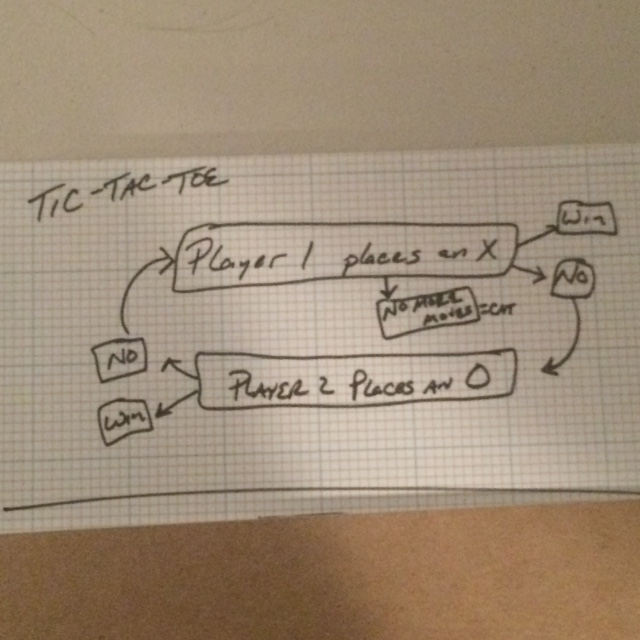 TIC-TAC-TOE
Player 1 places an X
Win
NO
NO MORE
moves
=CAT
NO
Win
PLAYER 2 PLACES AN O